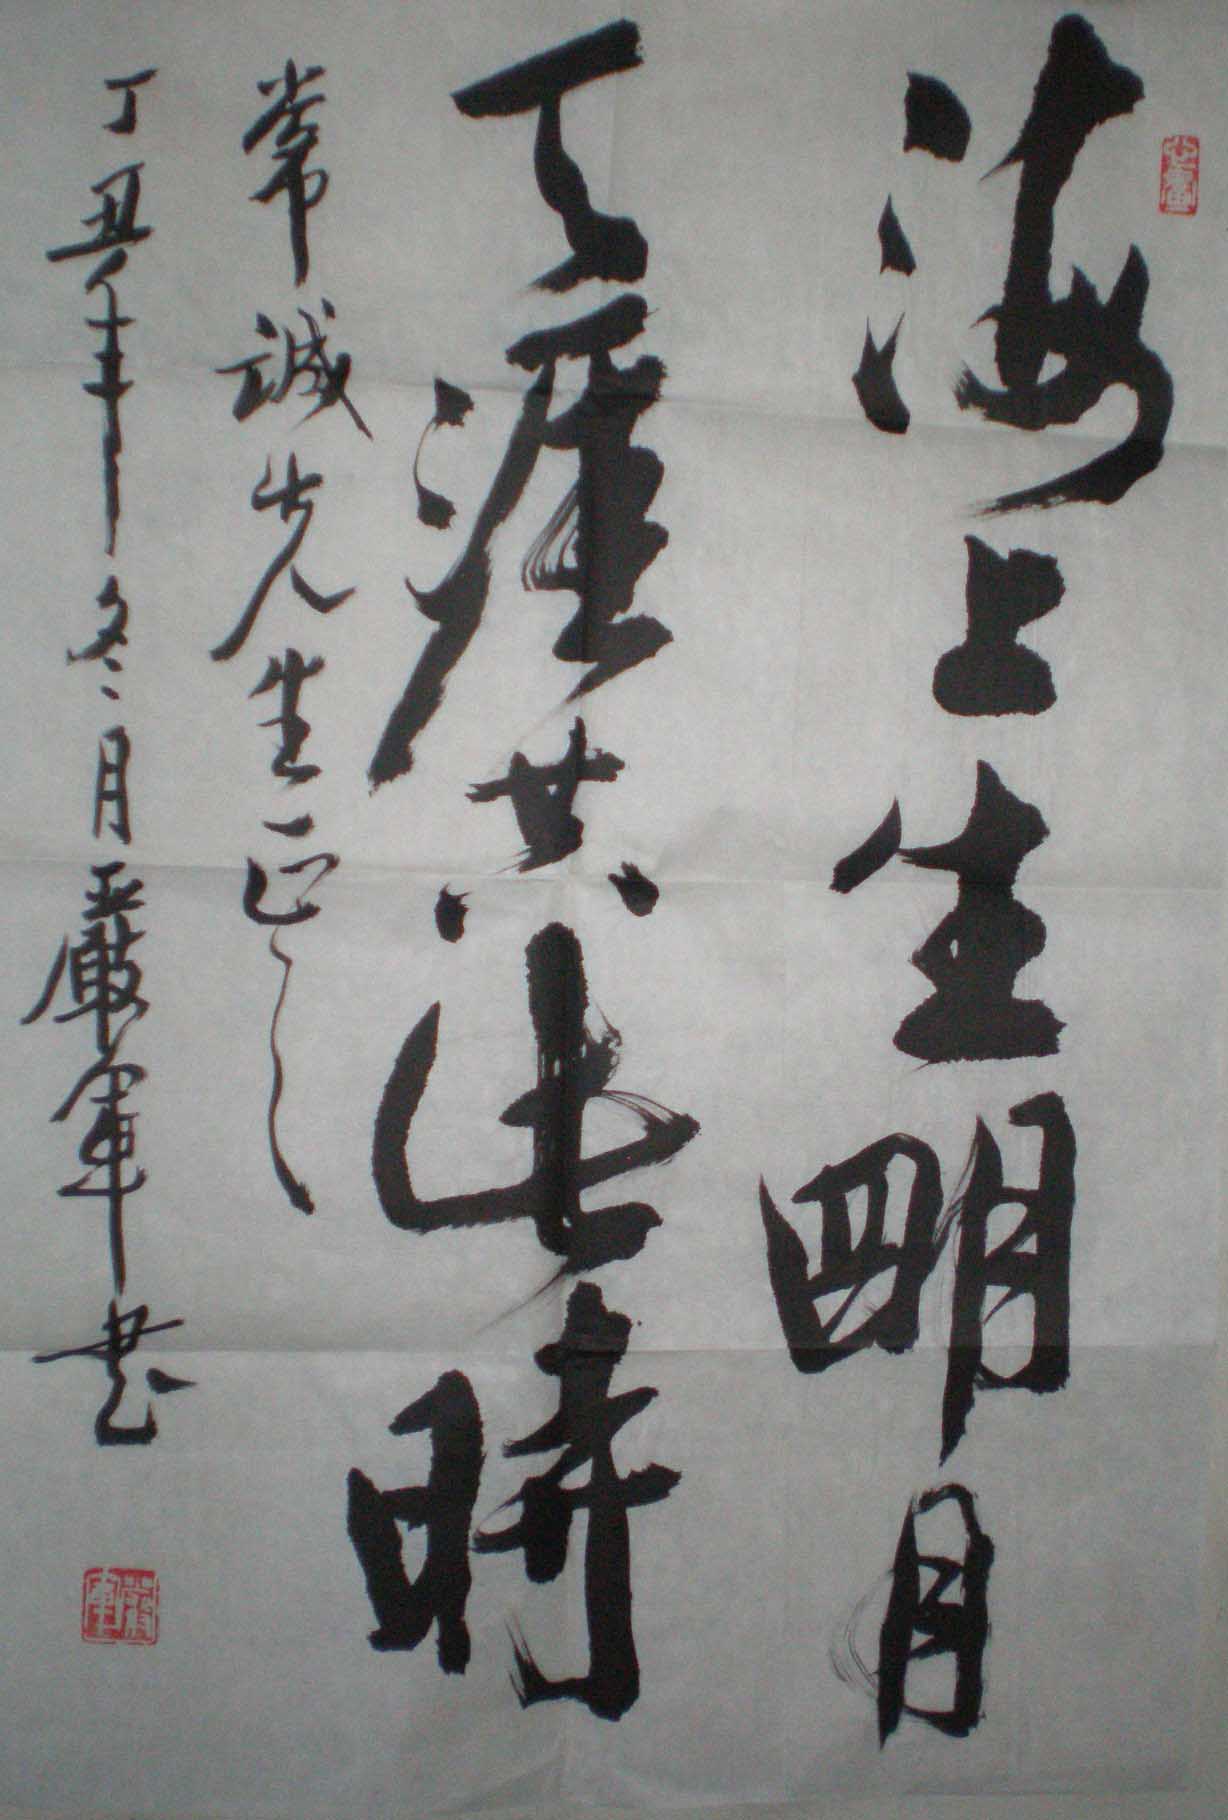 海上生明月
天涯共此時
常誠先生正之
丁丑年冬月嚴軍書
嚴軍